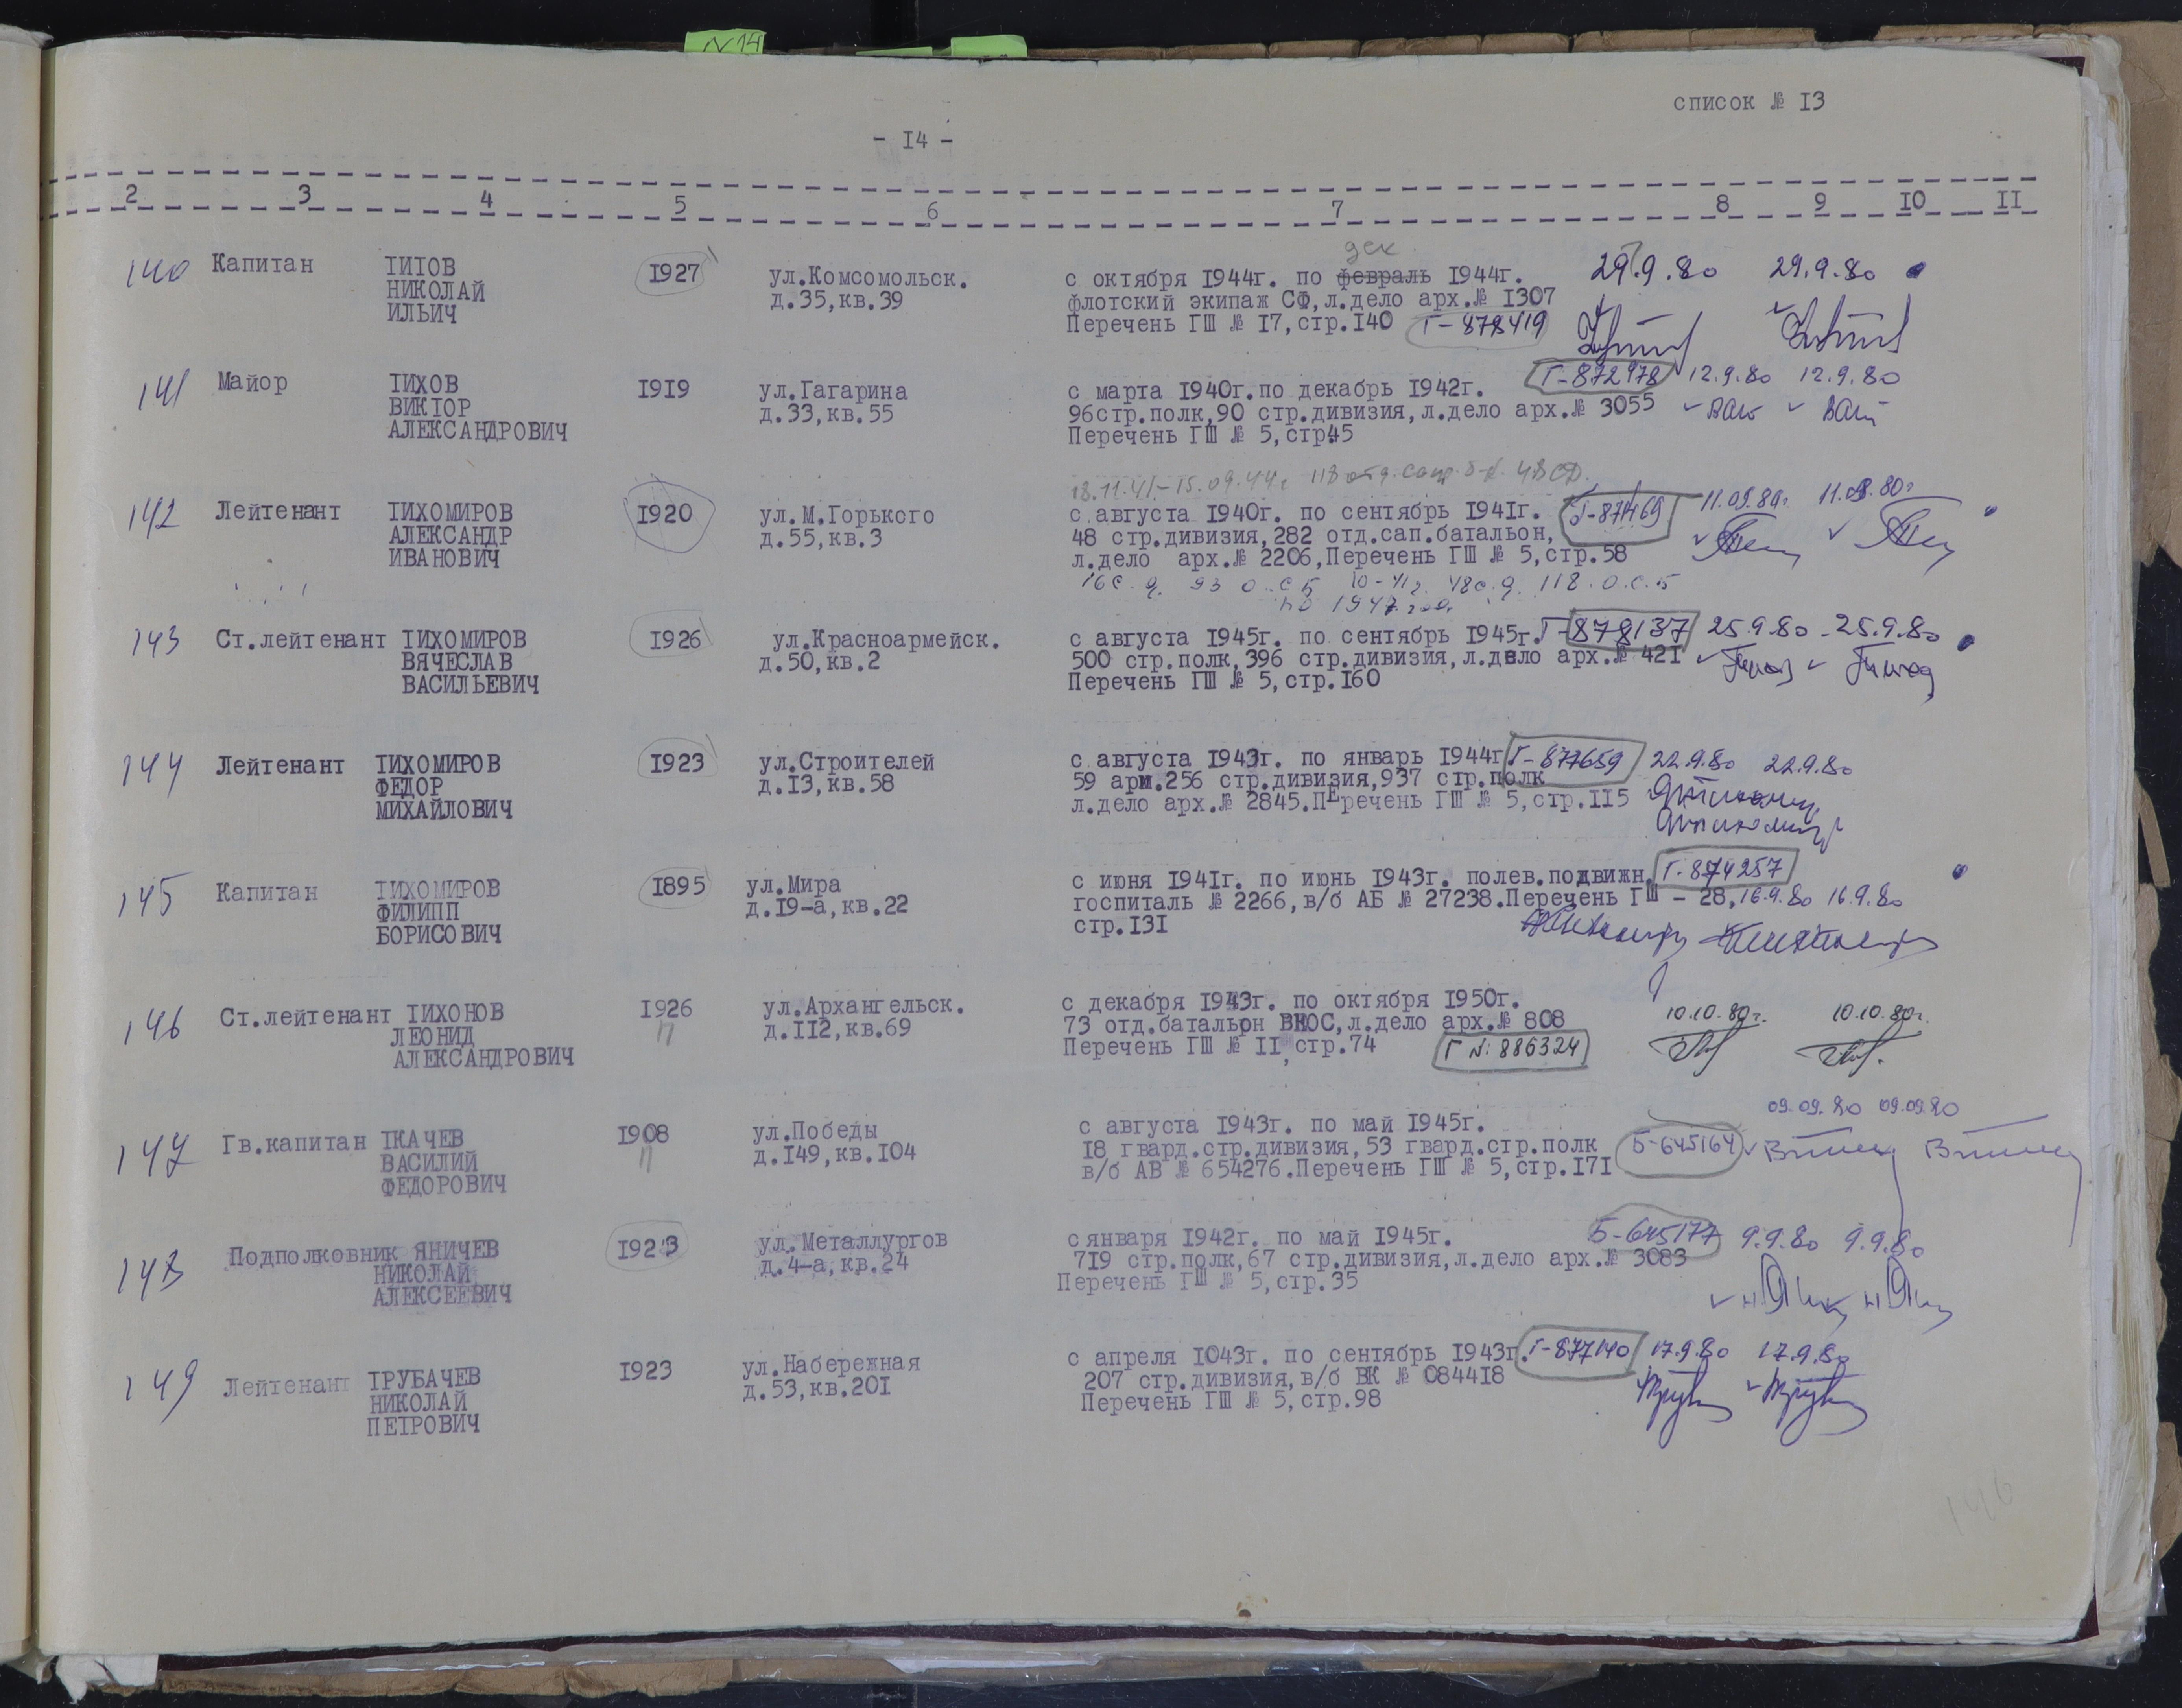 N14
список № I3
- I4 -
2 3 4 5 6 7 8 9 I0 II
дек
140 Капитан ТИТОВ I927 ул.Комсомольск. с октября I944г. по февраль I944г. 29.9.80 29.9.80
НИКОЛАЙ д.35,кв.39 флотский экипаж СФ,л.дело арх.№ I307
ИЛЬИЧ Перечень ГШ № I7,стр.I40 Г-878419
141 Майор ТИХОВ I9I9 ул.Гагарина с марта I940г.по декабрь I942г. Г-872978 12.9.80 12.9.80
ВИКТОР д.33,кв.55 96стр.полк,90 стр.дивизия,л.дело арх.№ 3055
АЛЕКСАНДРОВИЧ Перечень ГШ № 5,стр45
18.11.41-15.09.44г 118 отд.сап.б-н. 48СД.
142 Лейтенант ТИХОМИРОВ I920 ул.М.Горького с августа I940г. по сентябрь I94Iг. 11.09.80г. 11.09.80г
АЛЕКСАНДР д.55,кв.3 48 стр.дивизия,282 отд.сап.батальон,
ИВАНОВИЧ л.дело арх.№ 2206,Перечень ГШ № 5,стр.58
16с.д. 93 о.с.б 10-41г. 48с.д. 118.о.с.б
по 1947 год
143 Ст.лейтенант ТИХОМИРОВ I926 ул.Красноармейск. с августа I945г. по сентябрь I945г. Г-878137 25.9.80 - 25.9.80
ВЯЧЕСЛАВ д.50,кв.2 500 стр.полк,396 стр.дивизия,л.дело арх.№ 42I
ВАСИЛЬЕВИЧ Перечень ГШ № 5,стр.I60
144 Лейтенант ТИХОМИРОВ I923 ул.Строителей с августа I943г. по январь I944г Г-877659 22.9.80 22.9.80
ФЕДОР д.I3,кв.58 59 арм.256 стр.дивизия,937 стр.полк
МИХАЙЛОВИЧ л.дело арх.№ 2845.ПЕречень ГШ № 5,стр.II5
145 Капитан ТИХОМИРОВ I895 ул.Мира с июня I94Iг. по июнь I943г. полев.подвижн. Г-874257
ФИЛИПП д.I9-а,кв.22 госпиталь № 2266,в/б АБ № 27238.Перечень ГШ - 28, 16.9.80 16.9.80
БОРИСОВИЧ стр.I3I
146 Ст.лейтенант ТИХОНОВ I926 ул.Архангельск. с декабря I943г. по октября I950г. 10.10.80г. 10.10.80г.
ЛЕОНИД п д.II2,кв.69 73 отд.батальон ВНОС,л.дело арх.№ 808
АЛЕКСАНДРОВИЧ Перечень ГШ № II,стр.74 Г №: 886324
09.09.80 09.09.80
147 Гв.капитан ТКАЧЕВ I908 ул.Победы с августа I943г. по май I945г.
ВАСИЛИЙ п д.I49,кв.I04 I8 гвард.стр.дивизия,53 гвард.стр.полк Б-645164
ФЕДОРОВИЧ в/б АВ № 654276.Перечень ГШ № 5,стр.I7I
148 Подполковник ЯНИЧЕВ I923 ул.Металлургов с января I942г. по май I945г. Б-645177 9.9.80 9.9.80
НИКОЛАЙ д.4-а,кв.24 7I9 стр.полк,67 стр.дивизия,л.дело арх.№ 3083
АЛЕКСЕЕВИЧ Перечень ГШ № 5,стр.35
149 Лейтенант ТРУБАЧЕВ I923 ул.Набережная с апреля I043г. по сентябрь I943г. Г-877140 17.9.80 17.9.80
НИКОЛАЙ д.53,кв.20I 207 стр.дивизия,в/б ВК № 0844I8
ПЕТРОВИЧ Перечень ГШ № 5,стр.98
146